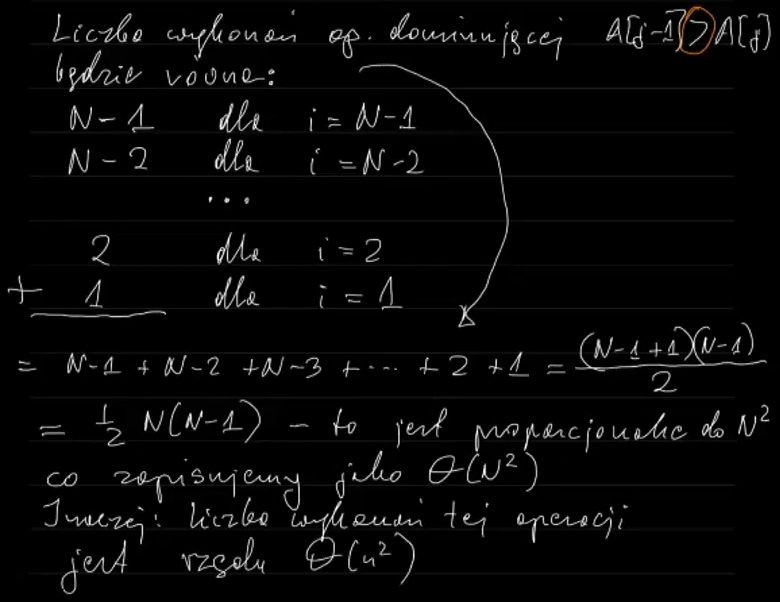 Liczba wykonań op. dominującej A[j-1] > A[j]
będzie równa:
N-1 dla i = N-1
N-2 dla i = N-2
...
2 dla i = 2
+ 1 dla i = 1
= N-1 + N-2 + N-3 + ... + 2 + 1 = (N-1+1)(N-1)/2
= 1/2 N(N-1) - to jest proporcjonalne do N²
co zapisujemy jako Θ(N²)
Inaczej: liczba wykonań tej operacji
jest rzędu Θ(n²)